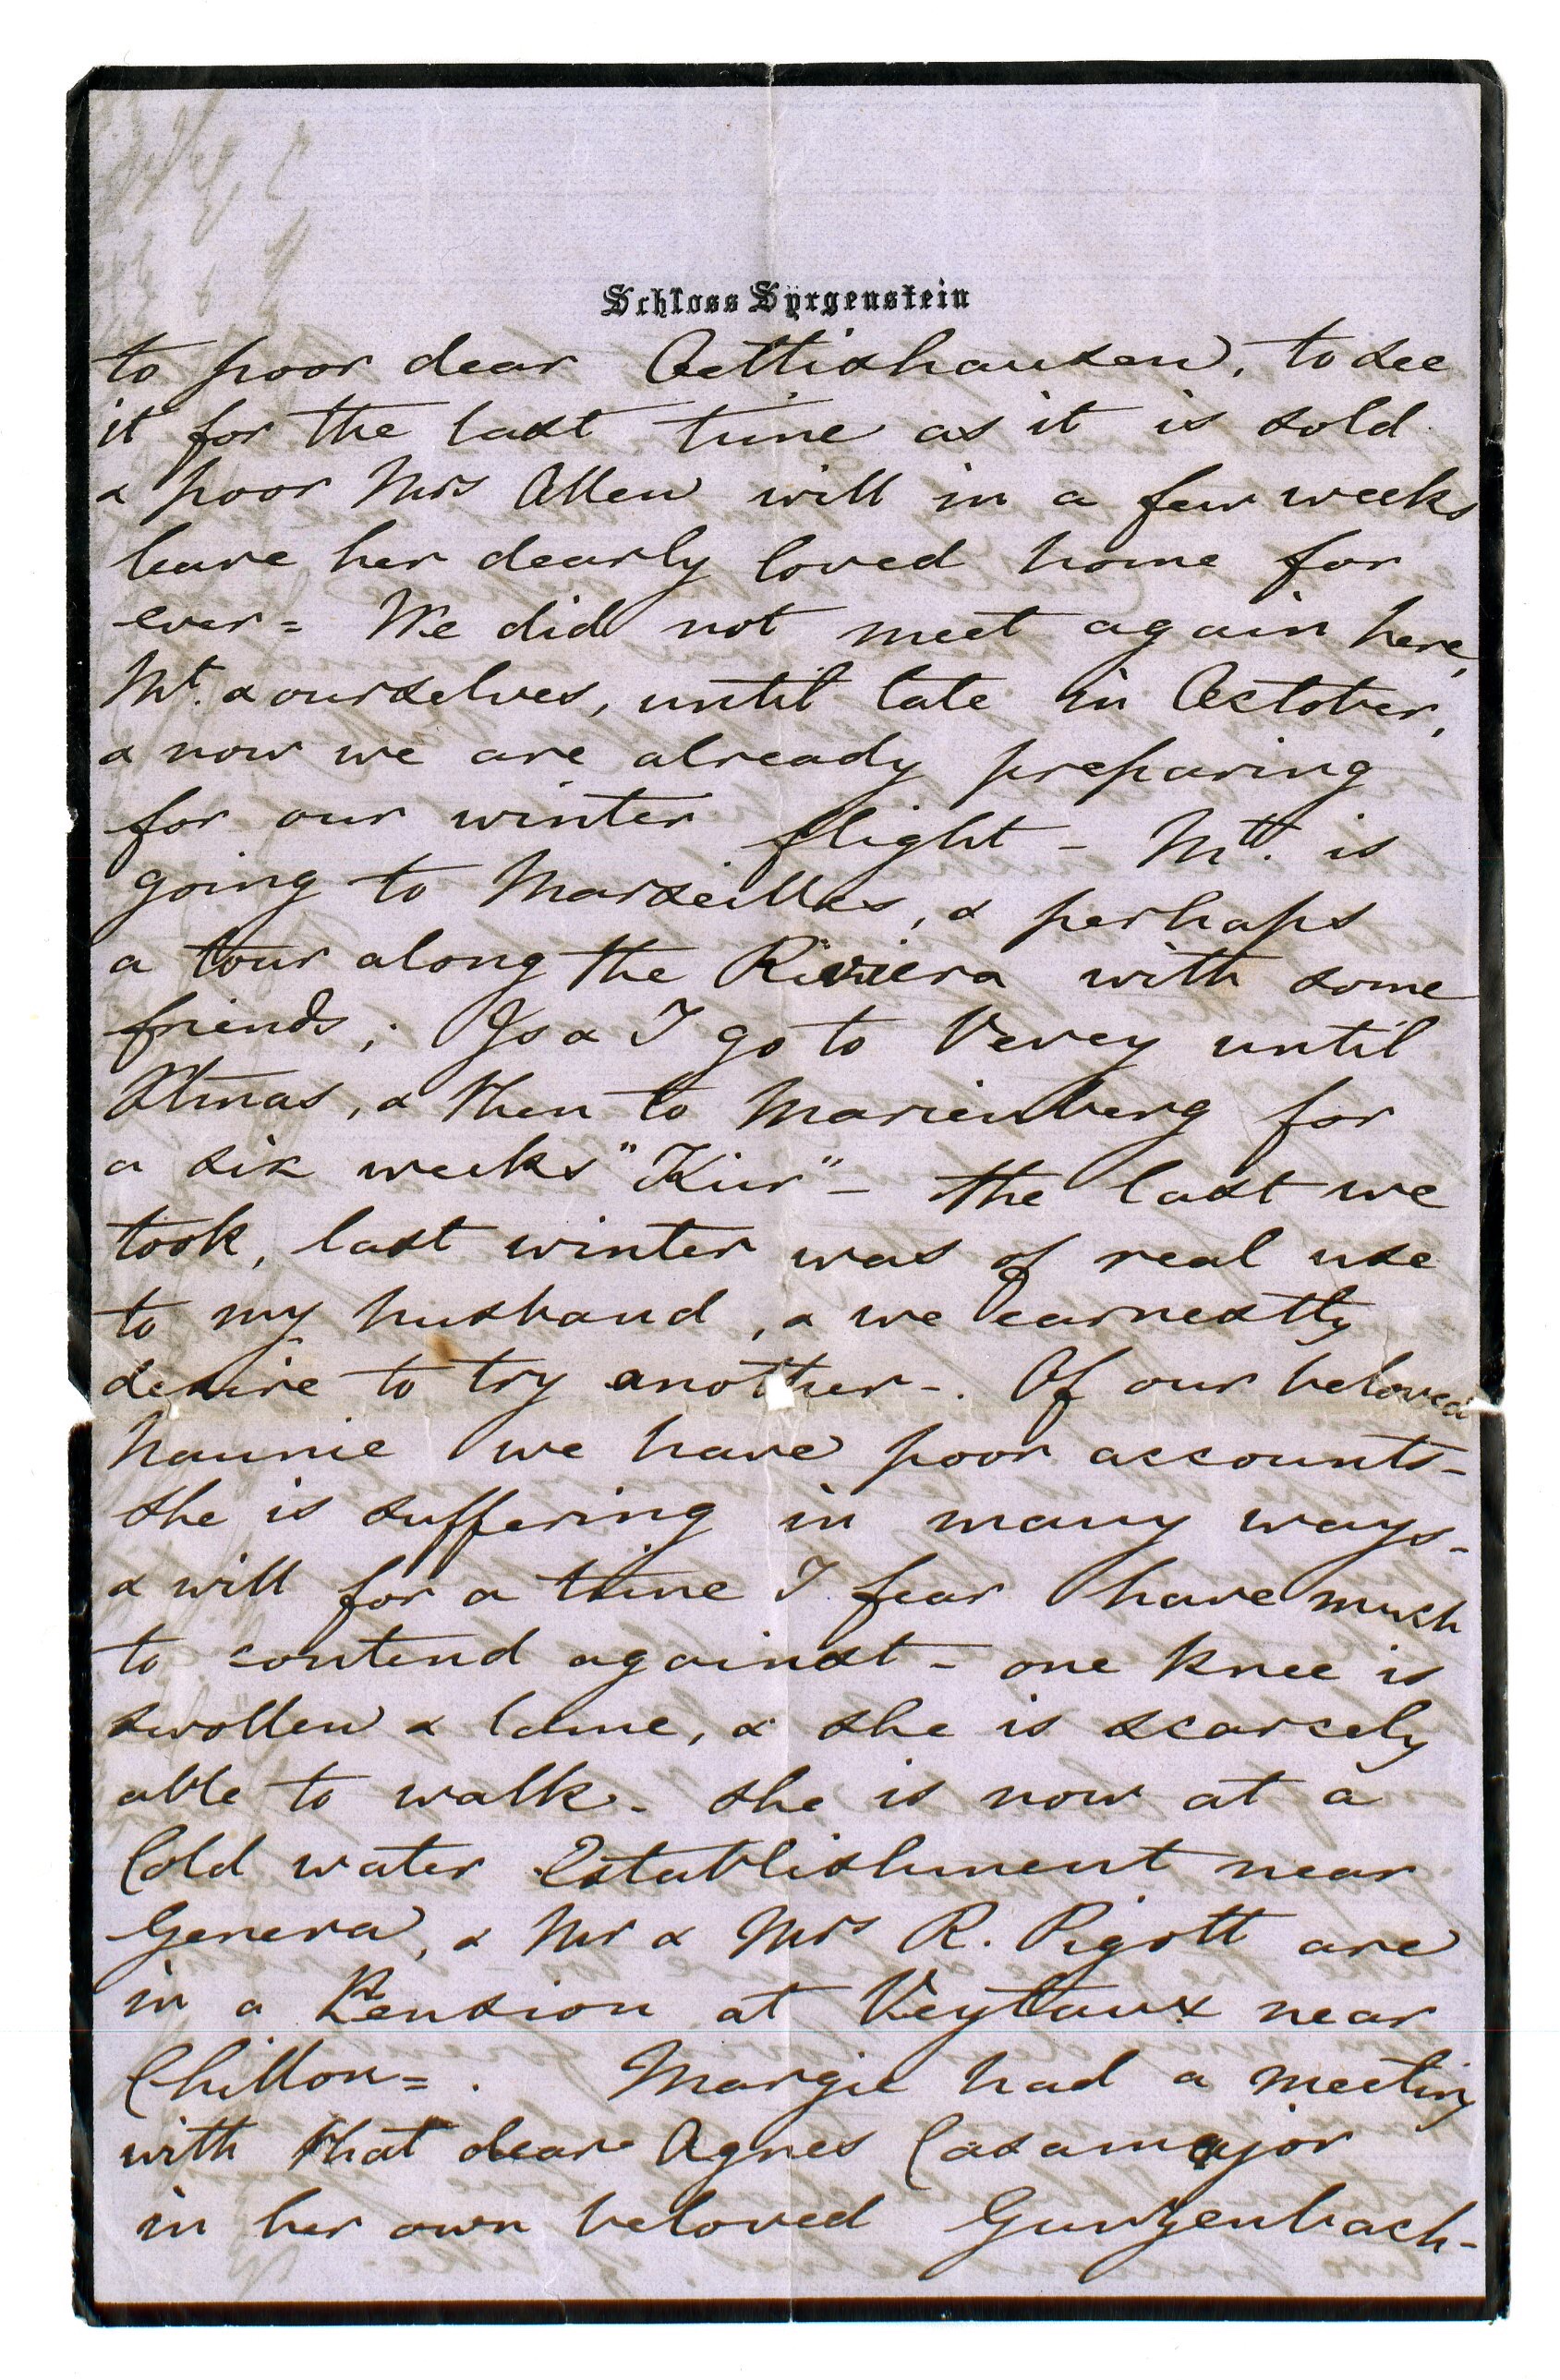 Schloss Syrgenstein
to poor dear Oettishausen, to see
it for the last time as it is sold
& poor Mrs Allen will in a few weeks
leave her dearly loved home for
ever = We did not meet again here,
Mt. & ourselves, until late in October,
& now we are already preparing
for our winter flight - Mtt. is
going to Marseilles, & perhaps
a tour along the Riviera with some
friends; Js & I go to Vevey until
Xtmas, & then to Marienberg for
a six weeks "Kur" - the last we
took, last winter was of real use
to my husband, & we earnestly
desire to try another -. Of our beloved
Nannie we have poor accounts -
she is suffering in many ways -
& will for a time I fear have much
to contend against - one knee is
swollen & lame, & she is scarcely
able to walk - she is now at a
Cold water Establishment near
Geneva, & Mr & Mrs R. Pigott are
in a Pension at Veytaux near
Chillon = . Margie had a meeting
with that dear Agnes Casamajor
in her own beloved Guntzenbach -